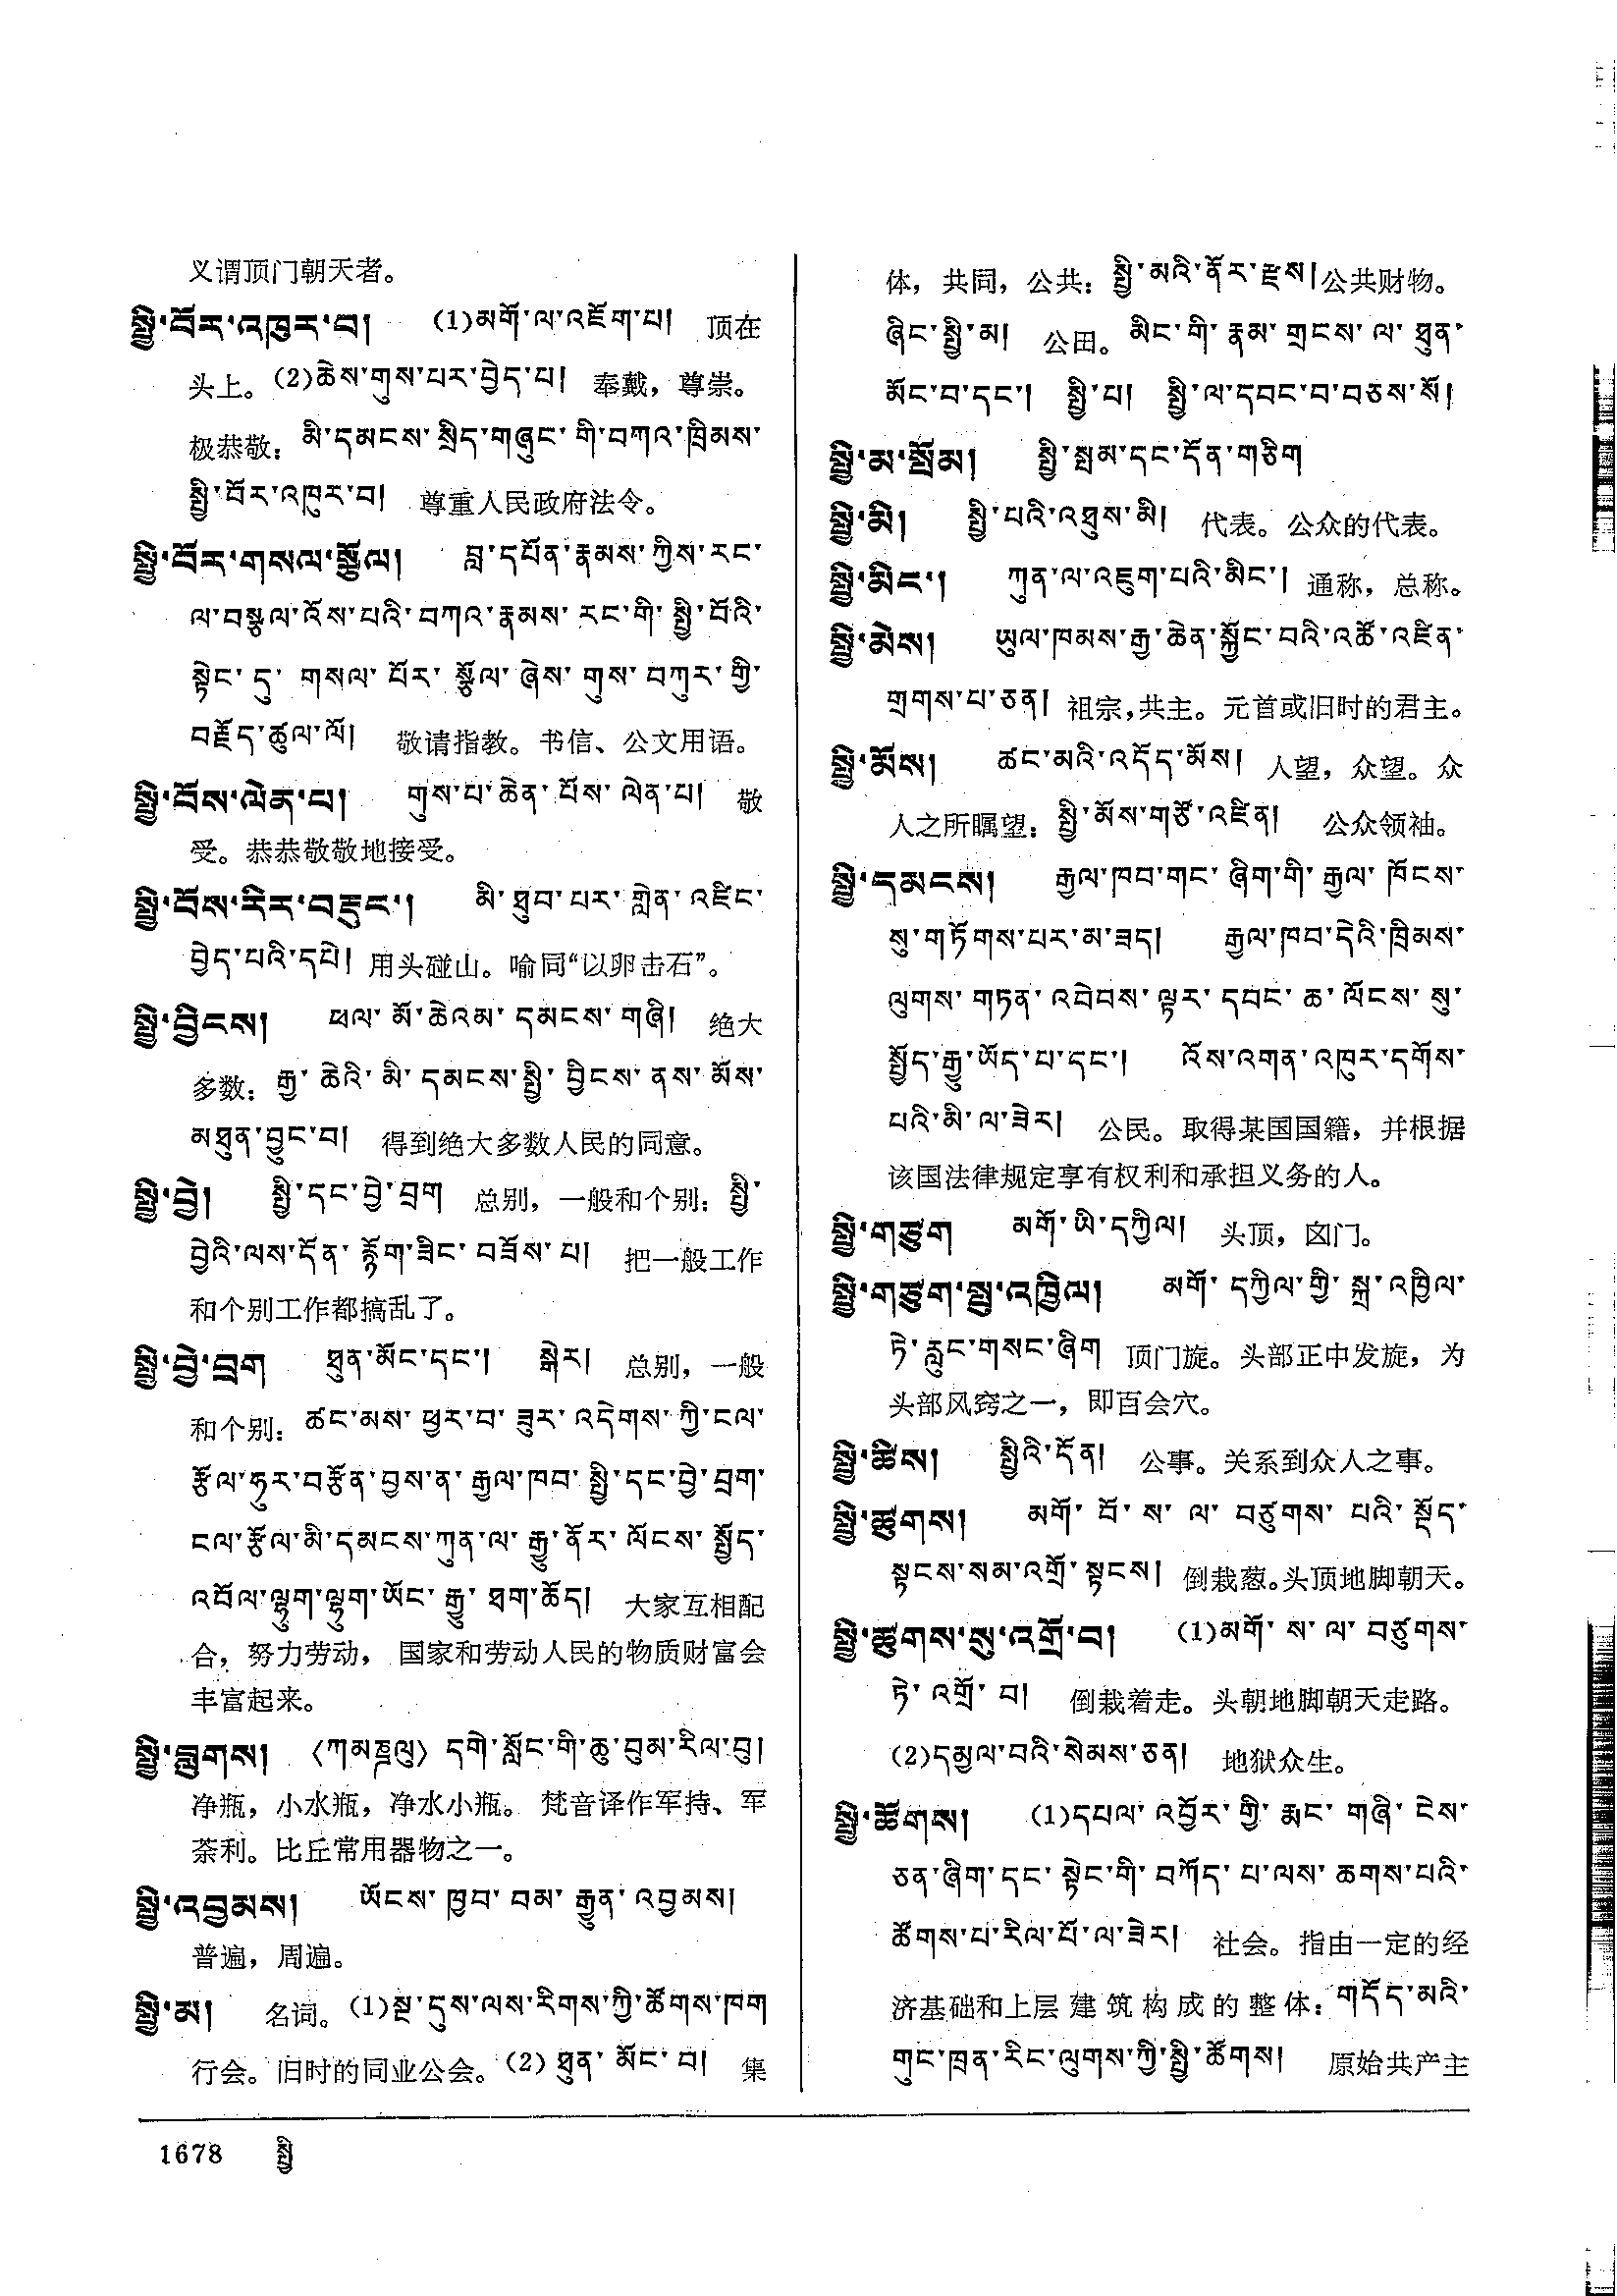 义谓顶门朝天者。
སྤྱི་བོར་འཁུར་བ། (1)མགོ་ལ་འཇོག་པ། 顶在
头上。(2)ཆེས་གུས་པར་བྱེད་པ། 奉戴，尊崇。
极恭敬：མི་དམངས་སྲིད་གཞུང་གི་བཀའ་ཁྲིམས་
སྤྱི་བོར་འཁུར་བ། 尊重人民政府法令。
སྤྱི་བོར་གསལ་སྩོལ། བླ་དཔོན་རྣམས་ཀྱིས་རང་
ལ་བསྩལ་འོས་པའི་བཀའ་རྣམས་རང་གི་སྤྱི་བོའི་
སྟེང་དུ་གསལ་པོར་སྩོལ་ཞེས་གུས་བཀུར་གྱི་
བརྗོད་ཚུལ་ལོ། 敬请指教。书信、公文用语。
སྤྱི་བོས་ལེན་པ། གུས་པ་ཆེན་པོས་ལེན་པ། 敬
受。恭恭敬敬地接受。
སྤྱི་བོས་རིར་བརྡུང་། མི་ཐུབ་པར་གླེན་འཛིང་
བྱེད་པའི་དཔེ། 用头碰山。喻同“以卵击石”。
སྤྱི་བྱིངས། ཕལ་མོ་ཆེའམ་དམངས་གཞི། 绝大
多数：རྒྱ་ཆེའི་མི་དམངས་སྤྱི་བྱིངས་ནས་མོས་
མཐུན་བྱུང་བ། 得到绝大多数人民的同意。
སྤྱི་བྱེ། སྤྱི་དང་བྱེ་བྲག 总别，一般和个别：སྤྱི་
བྱེའི་ལས་དོན་རྙོག་ཟིང་བཟོས་པ། 把一般工作
和个别工作都搞乱了。
སྤྱི་བྱེ་བྲག ཐུན་མོང་དང་། སྒེར། 总别，一般
和个别：ཚང་མས་ཕྱར་བ་ཟུར་འདེགས་ཀྱི་ངལ་
རྩོལ་ཧུར་བརྩོན་བྱས་ན་རྒྱལ་ཁབ་སྤྱི་དང་བྱེ་བྲག་
ངལ་རྩོལ་མི་དམངས་ཀུན་ལ་རྒྱུ་ནོར་ལོངས་སྤྱོད་
འབོལ་ལྷུག་ལྷུག་ཡོང་རྒྱུ་ཐག་ཆོད། 大家互相配
合，努力劳动，国家和劳动人民的物质财富会
丰富起来。
སྤྱི་བླུགས། 〈ཀམཎྜལུ〉 དགེ་སློང་གི་ཆུ་བུམ་རིལ་བུ།
净瓶，小水瓶，净水小瓶。梵音译作军持、军
荼利。比丘常用器物之一。
སྤྱི་འབྱམས། ཡོངས་ཁྱབ་བམ་རྒྱུན་འབྱམས།
普遍，周遍。
སྤྱི་མ། 名词。(1)སྔ་དུས་ལས་རིགས་ཀྱི་ཚོགས་ཁག
行会。旧时的同业公会。(2)ཐུན་མོང་བ། 集
体，共同，公共：སྤྱི་མའི་ནོར་རྫས།公共财物。
ཞིང་སྤྱི་མ། 公田。མིང་གི་རྣམ་གྲངས་ལ་ཐུན་
མོང་བ་དང་། སྤྱི་པ། སྤྱི་ལ་དབང་བ་བཅས་སོ།
སྤྱི་མ་སྲོམ། སྤྱི་སྲམ་དང་དོན་གཅིག
སྤྱི་མི། སྤྱི་པའི་འཐུས་མི། 代表。公众的代表。
སྤྱི་མིང་། ཀུན་ལ་འཇུག་པའི་མིང་། 通称，总称。
སྤྱི་མེས། ཡུལ་ཁམས་རྒྱ་ཆེན་སྐྱོང་བའི་འཚོ་འཛིན་
གྲགས་པ་ཅན། 祖宗，共主。元首或旧时的君主。
སྤྱི་མོས། ཚང་མའི་འདོད་མོས། 人望，众望。众
人之所瞩望：སྤྱི་མོས་གཙོ་འཛིན། 公众领袖。
སྤྱི་དམངས། རྒྱལ་ཁབ་གང་ཞིག་གི་རྒྱལ་ཁོངས་
སུ་གཏོགས་པར་མ་ཟད། རྒྱལ་ཁབ་དེའི་ཁྲིམས་
ལུགས་གཏན་འབེབས་ལྟར་དབང་ཆ་ལོངས་སུ་
སྤྱོད་རྒྱུ་ཡོད་པ་དང་། འོས་འགན་འཁུར་དགོས་
པའི་མི་ལ་ཟེར། 公民。取得某国国籍，并根据
该国法律规定享有权利和承担义务的人。
སྤྱི་གཙུག མགོ་ཡི་དཀྱིལ། 头顶，囟门。
སྤྱི་གཙུག་སྤྲ་འཁྱིལ། མགོ་དཀྱིལ་གྱི་སྐྲ་འཁྱིལ་
ཏེ་རླུང་གསང་ཞིག 顶门旋。头部正中发旋，为
头部风窍之一，即百会穴。
སྤྱི་ཆིས། སྤྱིའི་དོན། 公事。关系到众人之事。
སྤྱི་ཚུགས། མགོ་བོ་ས་ལ་བཙུགས་པའི་སྡོད་
སྟངས་སམ་འགྲོ་སྟངས། 倒栽葱。头顶地脚朝天。
སྤྱི་ཚུགས་སུ་འགྲོ་བ། (1)མགོ་ས་ལ་བཙུགས་
ཏེ་འགྲོ་བ། 倒栽着走。头朝地脚朝天走路。
(2)དམྱལ་བའི་སེམས་ཅན། 地狱众生。
སྤྱི་ཚོགས། (1)དཔལ་འབྱོར་གྱི་རྨང་གཞི་ངེས་
ཅན་ཞིག་དང་སྟེང་གི་བཀོད་པ་ལས་ཆགས་པའི་
ཚོགས་པ་རིལ་པོ་ལ་ཟེར། 社会。指由一定的经
济基础和上层建筑构成的整体：གདོད་མའི་
གུང་ཁྲན་རིང་ལུགས་ཀྱི་སྤྱི་ཚོགས། 原始共产主
1678 སྤྱི